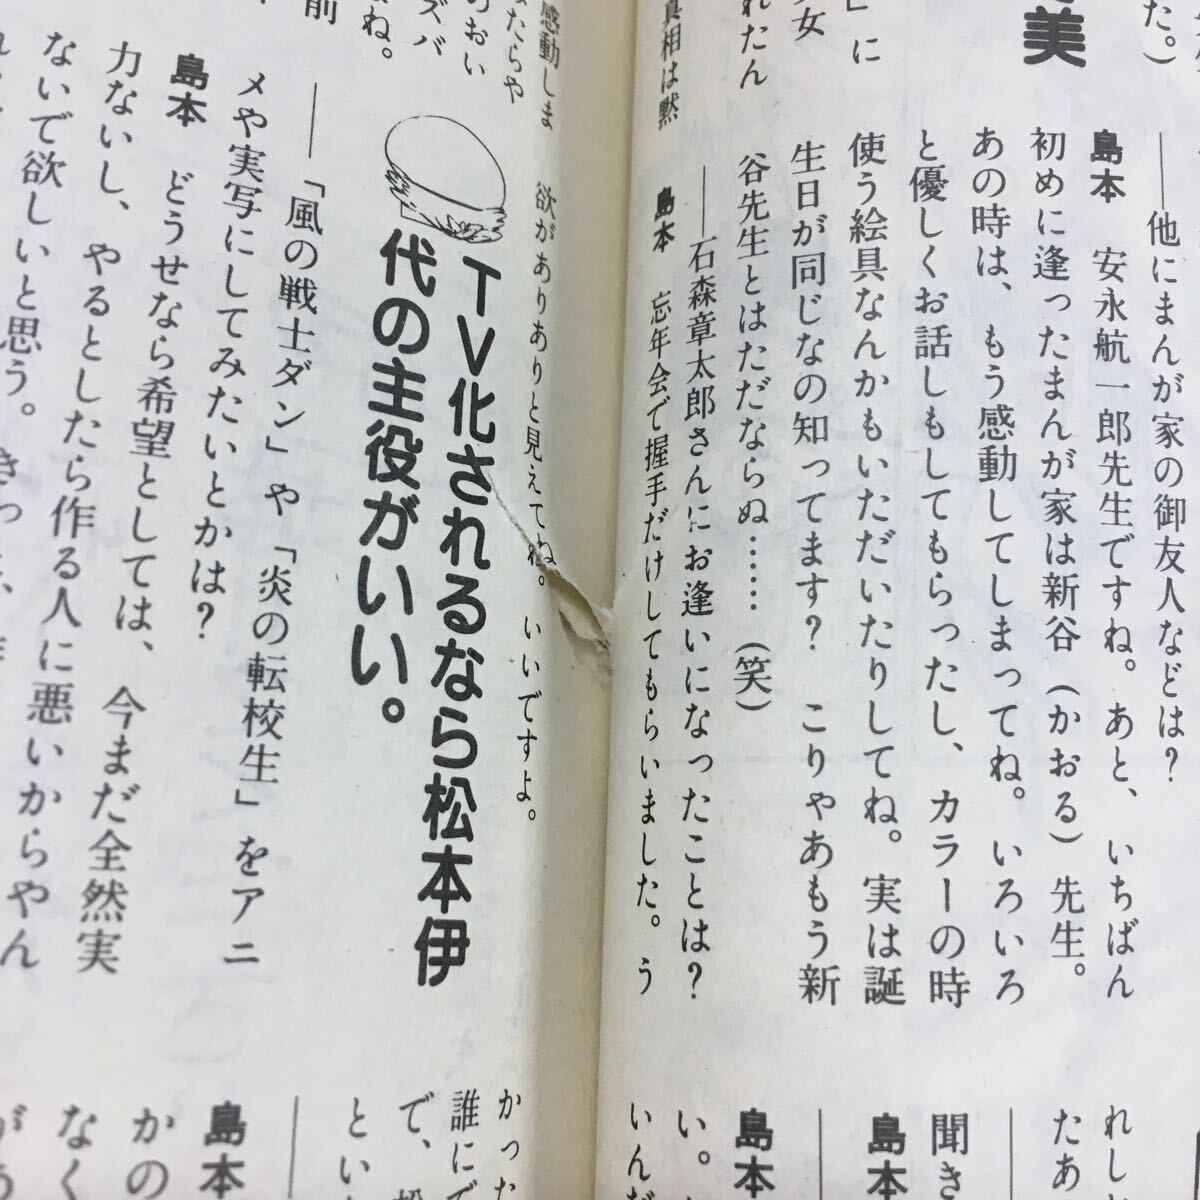 た。）
美
」に
少女
れたん
真相は黙
――他にまんが家の御友人などは？
島本　安永航一郎先生ですね。あと、いちばん
初めに逢ったまんが家は新谷（かおる）先生。
あの時は、もう感動してしまってね。いろいろ
と優しくお話しもしてもらったし、カラーの時
使う絵具なんかもいただいたりしてね。実は誕
生日が同じなの知ってます？　こりゃあもう新
谷先生とはただならぬ……（笑）
――石森章太郎さんにお逢いになったことは？
島本　忘年会で握手だけしてもらいました。う
れし
たあ
聞き
島本
島本
い。
いんだ
感動しま
たらや
のおい
ズバ
ね。
前
欲がありありと見えてね。いいですよ。
TV化されるなら松本伊
代の主役がいい。
――「風の戦士ダン」や「炎の転校生」をアニ
メや実写にしてみたいとかは？
島本　どうせなら希望としては、今まだ全然実
力ないし、やるとしたら作る人に悪いからやん
ないで欲しいと思う。
かった
誰にで
で、松
とい
島本
かの
なく
があ